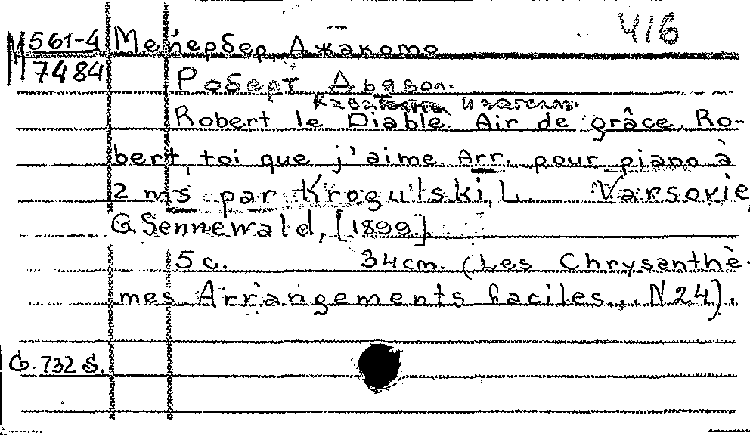 416
М 561-4 Мейербер Джакомо
7484 Роберт Дьявол.
Robert le Diable Air de grâce Ro-
bert, toi que j'aime Arr. pour piano à
2 ms par Krogulski, L. Varsovie,
G. Sennewald, [1899].
5 c. 34 cm. (Les Chrysanthè-
mes Arrangements faciles... N 24).
G. 732 S.